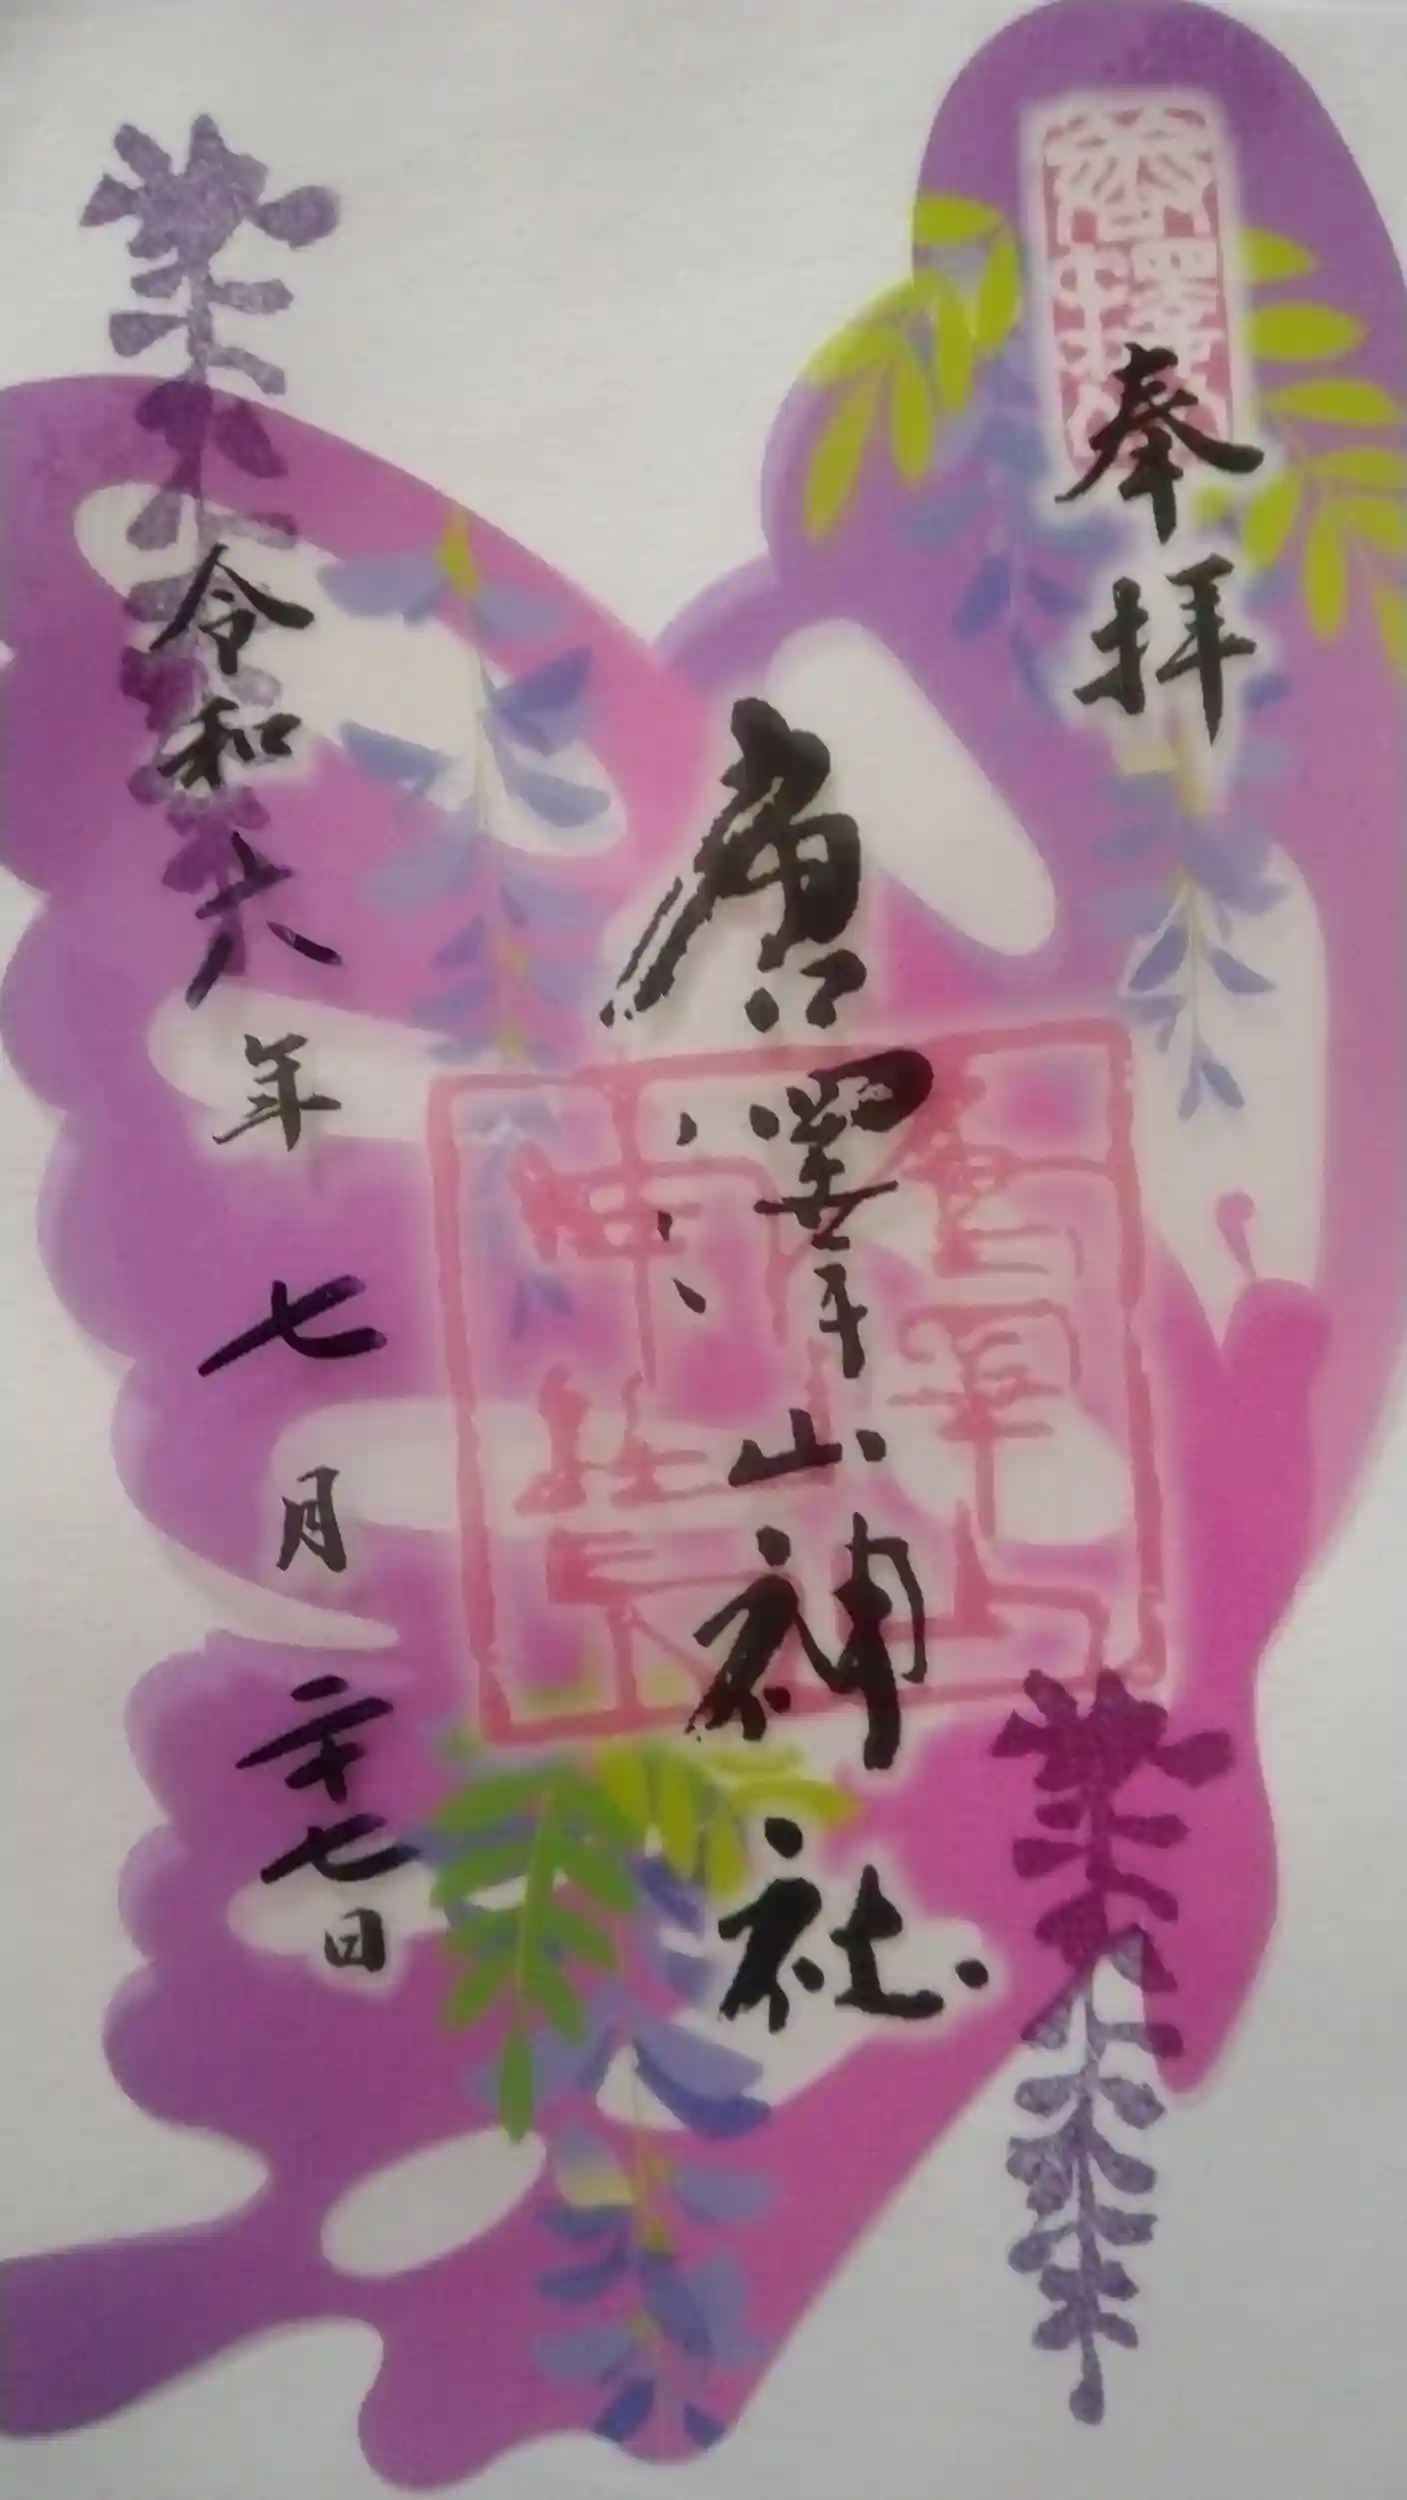 奉拝
唐澤山神社
令和六年七月二十七日